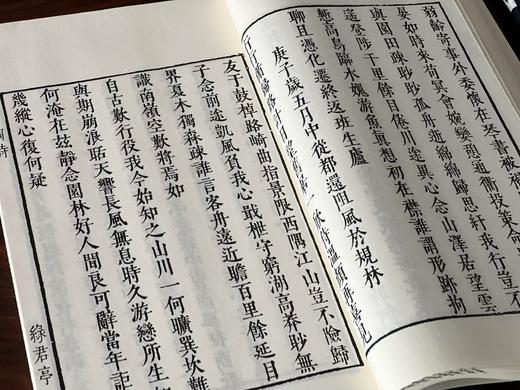 弱齡寄事外委懷在琴書被
晏如時來苟冥會婉孌憩通衢投策命
與園田疎眇眇孤舟逝綿綿歸思紆我行豈
遙登陟千里餘目倦川途異心念山澤居望雲
慙高鳥臨水媿游魚眞想初在襟誰謂形跡拘
聊且憑化遷終返班生廬
庚子歲五月中從都還阻風於規林
友于鼓棹路崎曲指景限西隅江山豈不險歸
子念前途凱風負我心戢枻守窮湖高莽眇無
界夏木獨森疎誰言客舟遠近瞻百里餘延目
識南嶺空歎將焉如
自古歎行役我今始知之山川一何曠巽坎難
與期崩浪聒天響長風無息時久游戀所生
何淹在玆靜念園林好人間良可辭當年詎
幾縱心復何疑
綠君亭